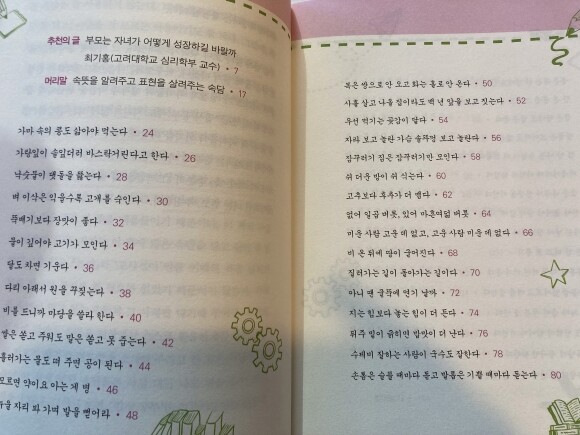 추천의 글 부모는 자녀가 어떻게 성장하길 바랄까
최기홍(고려대학교 심리학부 교수) • 7
머리말 속뜻을 알려주고 표현을 살려주는 속담 • 17
가마 속의 콩도 삶아야 먹는다 • 24
가랑잎이 솔잎더러 바스락거린다고 한다 • 26
낙숫물이 댓돌을 뚫는다 • 28
벼 이삭은 익을수록 고개를 숙인다 • 30
뚝배기보다 장맛이 좋다 • 32
물이 깊어야 고기가 모인다 • 34
달도 차면 기운다 • 36
다리 아래서 원을 꾸짖는다 • 38
비를 드니까 마당을 쓸라 한다 • 40
말은 쏟고 주워도 말은 쏟고 못 줍는다 • 42
흘러가는 물도 떠 주면 공이 된다 • 44
모르면 약이요 아는 게 병 • 46
누울 자리 봐 가며 발을 뻗어라 • 48
복은 쌍으로 안 오고 화는 홀로 안 온다 • 50
사흘 살고 나올 집이라도 백 년 앞을 보고 짓는다 • 52
우선 먹기는 곶감이 달다 • 54
자라 보고 놀란 가슴 솥뚜껑 보고 놀란다 • 56
잠꾸러기 집은 잠꾸러기만 모인다 • 58
쉬 더운 방이 쉬 식는다 • 60
고추보다 후추가 더 맵다 • 62
없어 일곱 버릇, 있어 마흔여덟 버릇 • 64
미운 사람 고운 데 없고, 고운 사람 미운 데 없다 • 66
비 온 뒤에 땅이 굳어진다 • 68
질러가는 길이 돌아가는 길이다 • 70
아니 땐 굴뚝에 연기 날까 • 72
지는 힘보다 놓는 힘이 더 든다 • 74
뒤주 밑이 긁히면 밥맛이 더 난다 • 76
수제비 잘하는 사람이 국수도 잘한다 • 78
손톱은 슬플 때마다 돋고 발톱은 기쁠 때마다 돋는다 • 80